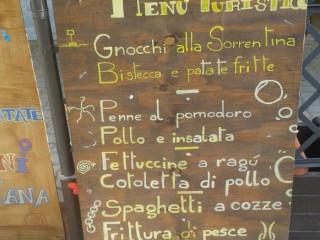 MENU TURISTIC
Gnocchi alla Sorrentina
Bistecca e patate fritte
Penne al pomodoro
Pollo e insalata
Fettuccine a ragú
Cotoletta di pollo
Spaghetti a cozze
Frittura di pesce